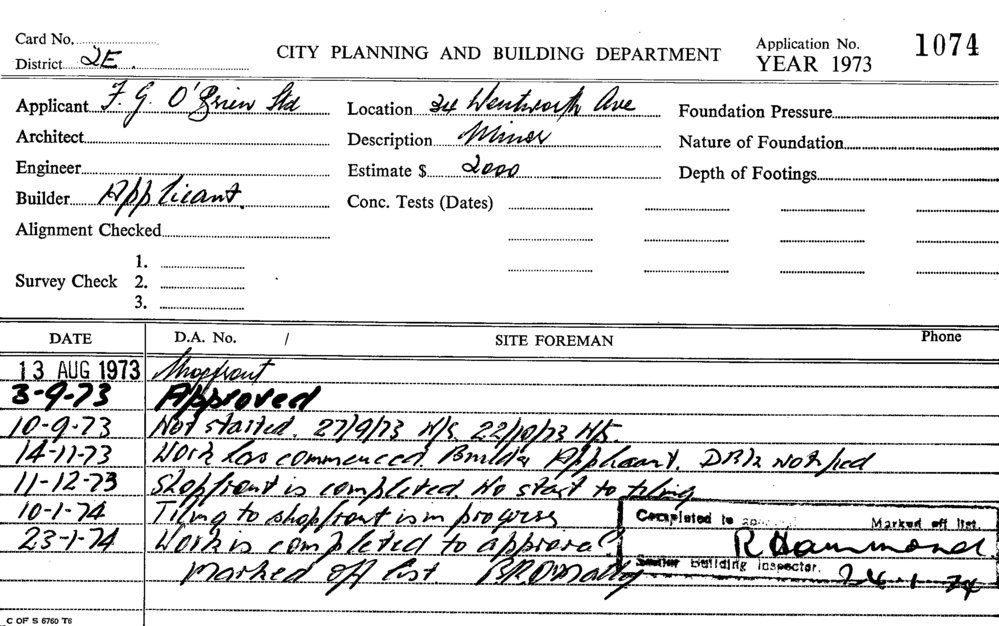 Card No.
District 2E.
CITY PLANNING AND BUILDING DEPARTMENT
Application No. 1074
YEAR 1973
Applicant F. G. O'Brien Ltd
Location 34 Wentworth Ave
Foundation Pressure
Architect
Description Minor
Nature of Foundation
Engineer
Estimate $ 2000
Depth of Footings
Builder Applicant.
Conc. Tests (Dates)
Alignment Checked
Survey Check
1.
2.
3.
DATE D.A. No. / SITE FOREMAN Phone
13 AUG 1973 Shopfront
3-9-73 Approved
10-9-73 Not started. 27/9/73 N/S. 22/10/73 N/S.
14-11-73 Work has commenced. Builder Applicant. notified
11-12-73 Shopfront is completed. No start to tiling
10-1-74 Tiling to shopfront is in progress
23-1-74 Work is completed to approval
Marked off list
Completed to Marked off list.
R Hammond
Senior Building Inspector. 24-1-74
C OF S 6760 T6